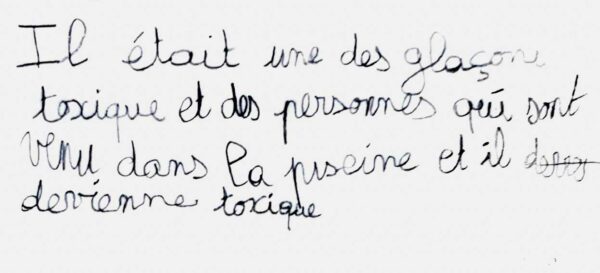 Il était une des glaçons
toxique et des personnes qui sont
venu dans la piscine et il
devienne toxique